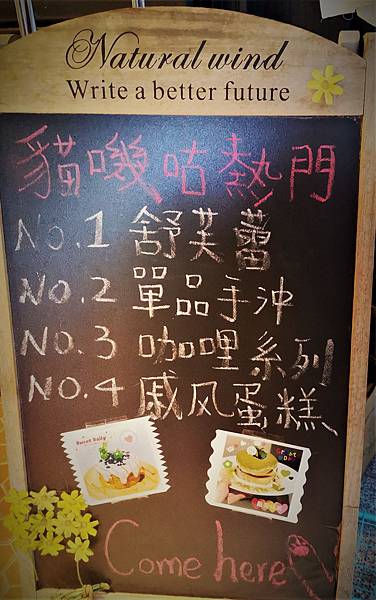 Natural wind
Write a better future
貓嘰咕熱門
No.1 舒芙蕾
No.2 單品手沖
No.3 咖哩系列
No.4 戚风蛋糕
Sweet Daily
Come here